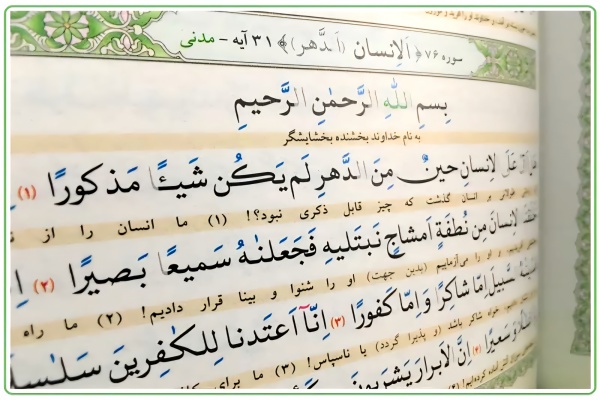 سوره ۷۶ ﴿ اَلاِنسان (اَلدَّهر) ﴾ ۳۱ آیه - مدنی
بِسمِ اللهِ الرَّحمٰنِ الرَّحیمِ
به نام خداوند بخشنده بخشایشگر
عَلَى الاِنسانِ حینٌ مِنَ الدَّهرِ لَم یَکُن شَیئًا مَذکورًا (۱)
طولانی بر انسان گذشت که چیز قابل ذکری نبود؟! (۱) ما انسان را از
الاِنسانَ مِن نُطفَةٍ اَمشاجٍ نَبتَلیهِ فَجَعَلنٰهُ سَمیعًا بَصیرًا (۲)
و او را می‌آزماییم (بدین جهت) او را شنوا و بینا قرار دادیم! (۲) ما راه
السَّبیلَ اِمّا شاکِرًا وَ اِمّا کَفورًا (۳) اِنّآ اَعتَدنا لِلکٰفِرینَ سَلٰسِلَا
خواه شاکر باشد (و پذیرا گردد) یا ناسپاس! (۳) ما برای
وَ سَعیرًا (۴) اِنَّ الاَبرارَ یَشرَبونَ